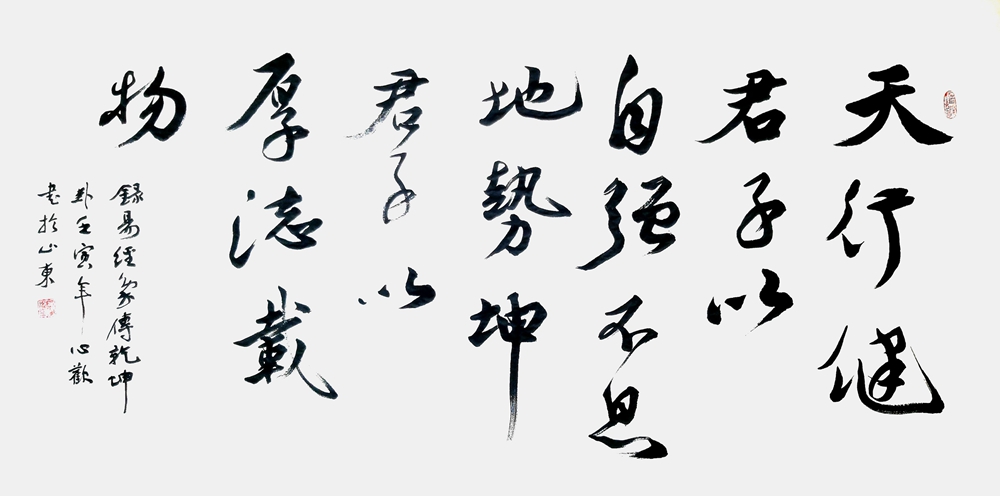 天行健
君子以
自强不息
地勢坤
君子以
厚德載
物
錄易經象傳乾坤
卦壬寅年一心歡
書於山東